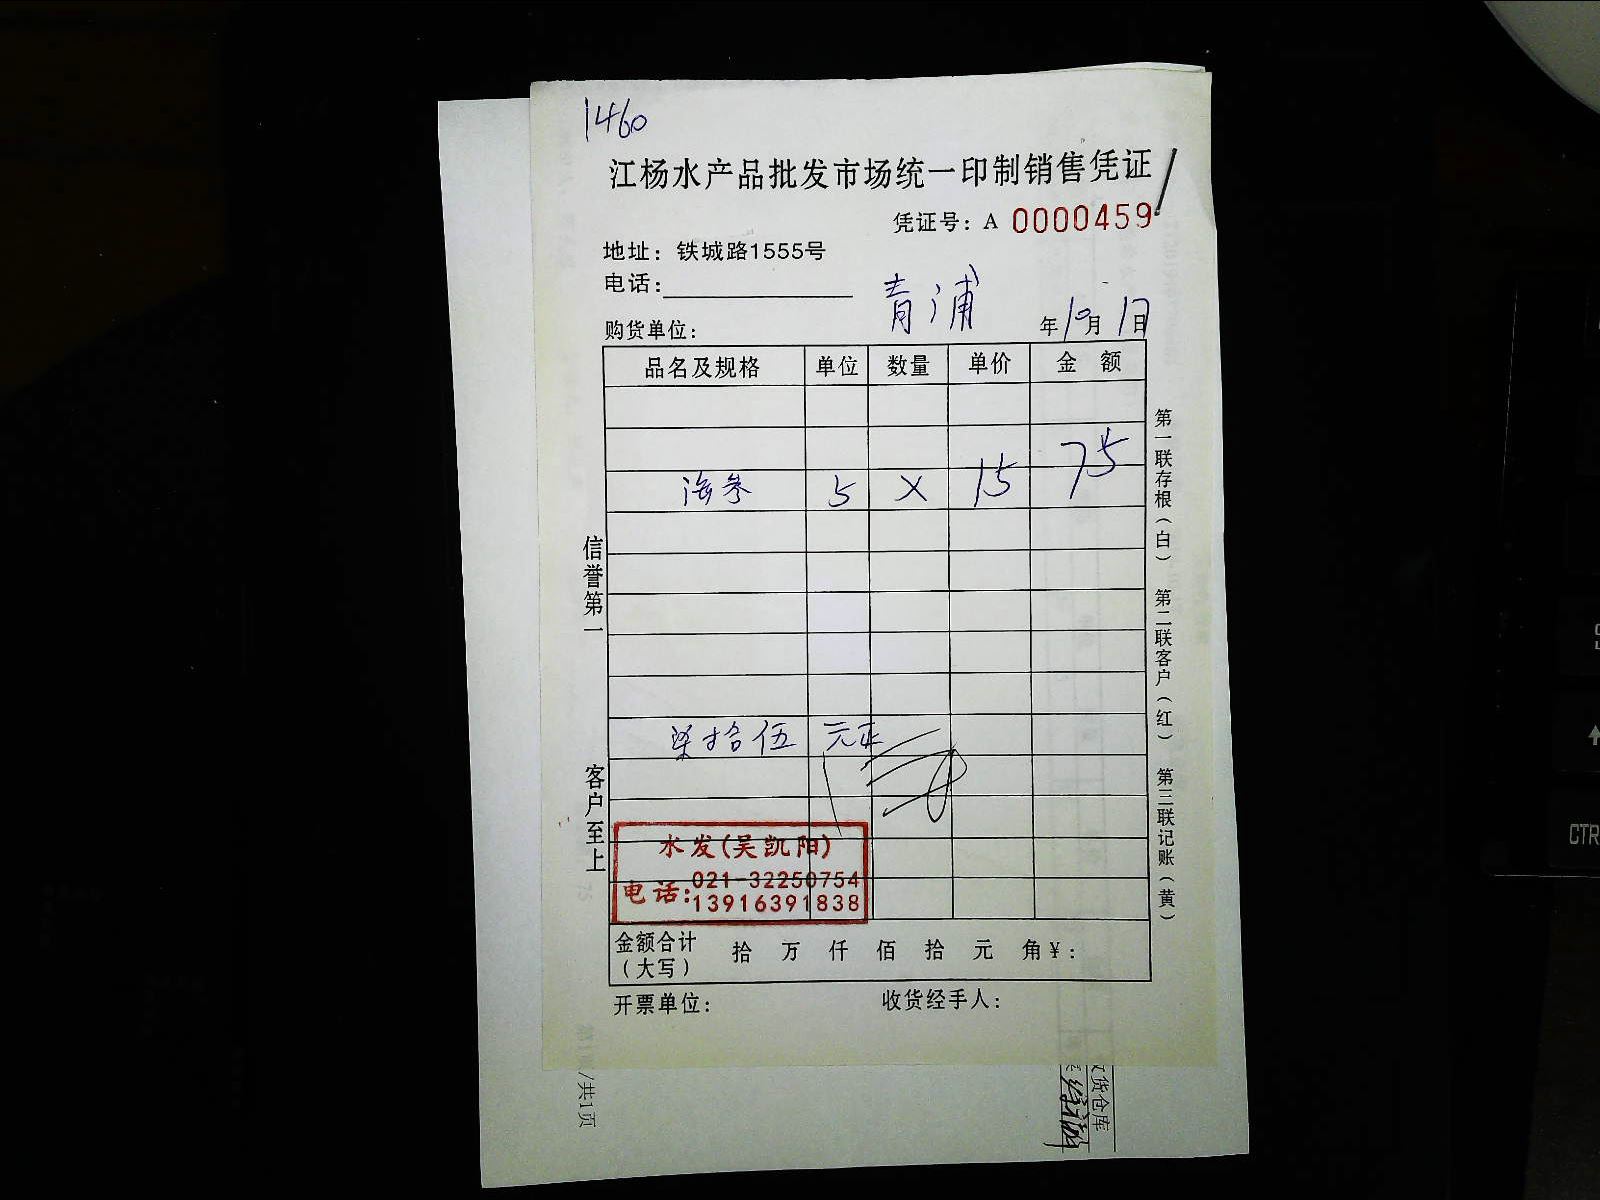 1460
江杨水产品批发市场统一印制销售凭证
凭证号：A 0000459
地址：铁城路1555号
电话：
青浦
购货单位： 年10月1日
品名及规格 单位 数量 单价 金额
海参 5 × 15 75
柒拾伍 元正
水发(吴凯阳)
电话:021-32250754
13916391838
金额合计（大写） 拾 万 仟 佰 拾 元 角¥：
开票单位： 收货经手人：
信誉第一
客户至上
第一联存根（白） 第二联客户（红） 第三联记账（黄）
/共1页
收货仓库
CTR